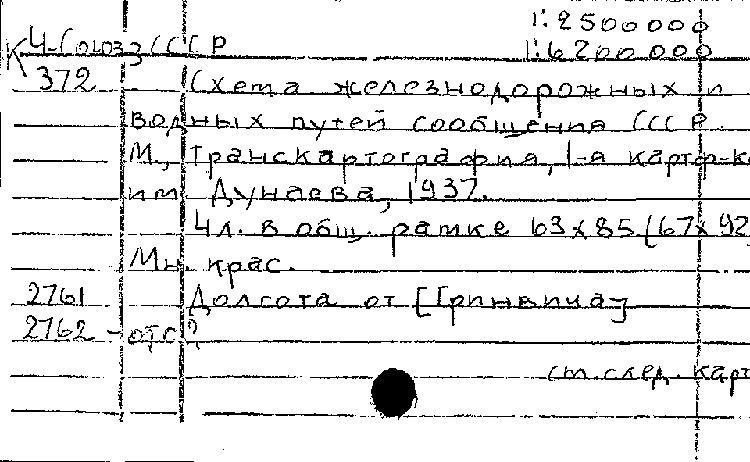 1:2500000
К Ч-Союз СССР 1:6200000
372 Схема железнодорожных и
водных путей сообщения СССР.
М., Транскартография, 1-я картф-ка
им. Дунаева, 1937.
4 л. в общ. рамке 63х85 (67х92
Мн. крас.
2761 Долгота от [Гринвича]
2762 - отс?
см. след. карт